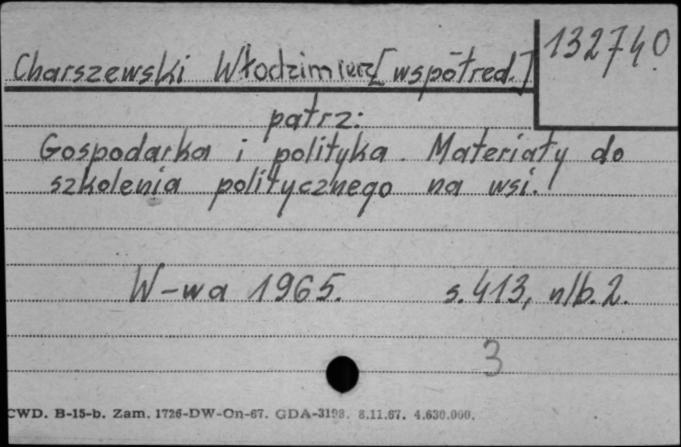 132740
Charszewski Włodzimierz [współred.]
patrz:
Gospodarka i polityka. Materiały do
szkolenia politycznego na wsi.
W-wa 1965. s. 413, nlb. 2.
3
CWD. B-15-b. Zam. 1726-DW-On-67. GDA-3198. 8.11.67. 4.630.000.